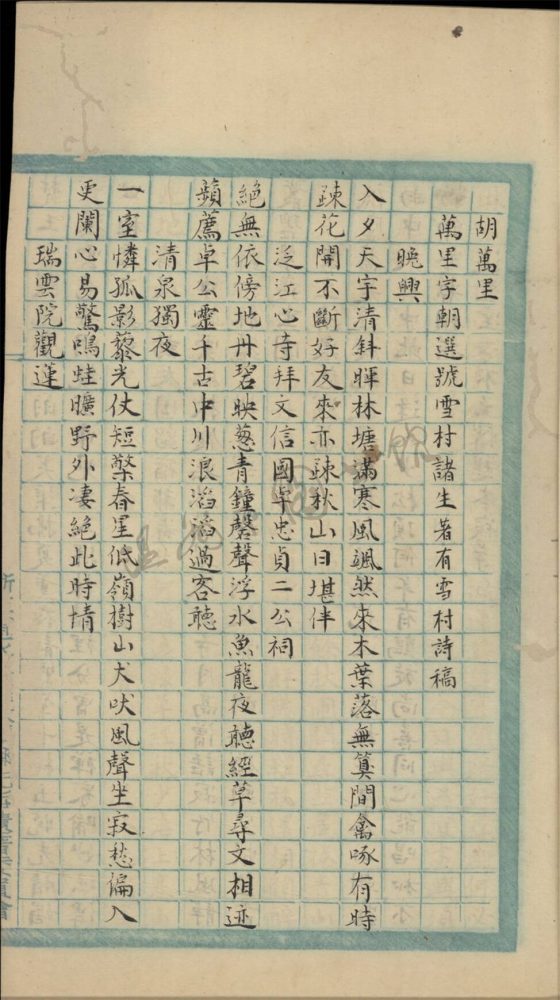 胡萬里
萬里字朝選號雪村諸生著有雪村詩稿
晚興
入夕天宇清斜暉林塘滿寒風颯然來木葉落無算間禽啄有時
踈花開不斷好友來亦踈秋山日堪伴
泛江心寺拜文信國卓忠貞二公祠
絕無依傍地丹碧映葱青鐘磬聲浮水魚龍夜聽經草尋文相迹
蘋薦卓公靈千古中川浪滔滔過客聽
清泉獨夜
一室憐孤影藜光仗短檠春星低嶺樹山犬吠風聲坐寂愁偏入
更闌心易驚鳴蛙曠野外凄絕此時情
瑞雲院觀蓮